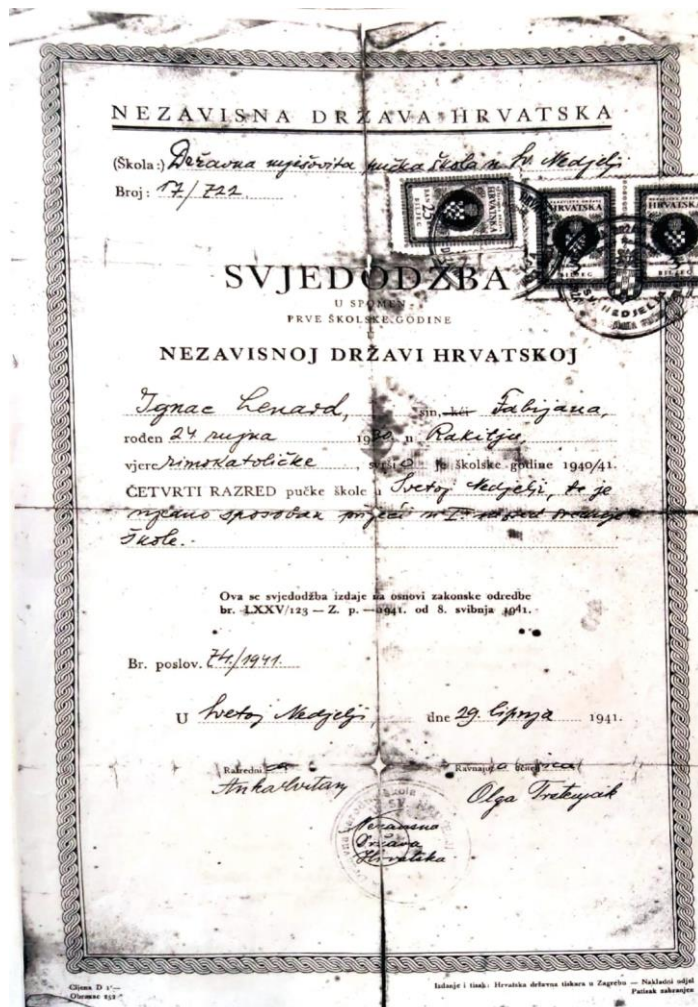 NEZAVISNA DRŽAVA HRVATSKA
(Škola:) Državna mješovita pučka škola u Sv. Nedjelji
Broj: 17/722
HRVATSKA
HRVATSKA
HRVATSKA
BILJEG
BILJEG
SVJEDODŽBA
U SPOMEN
PRVE ŠKOLSKE GODINE
U
NEZAVISNOJ DRŽAVI HRVATSKOJ
Ignac Lenard, sin, kći Fabijana,
rođen 24 rujna 1930 u Rakitju,
vjere rimokatoličke, svršio je školske godine 1940/41.
ČETVRTI RAZRED pučke škole u Svetoj Nedjelji, te je
sposoban prijeći u I. razred srednje
škole.
Ova se svjedodžba izdaje na osnovi zakonske odredbe
br. LXXV/123 — Z. p. — 1941. od 8. svibnja 1941.
Br. poslov. 74/1941.
U Svetoj Nedjelji, dne 29. lipnja 1941.
Razredni
Ravnajući učitelj
Anka
Olga
Nezavisna
Država
Hrvatska
Cijena D 1·—
Obrazac 252
Izdanje i tisak: Hrvatska državna tiskara u Zagrebu — Nakladni odjel
Patisak zabranjen